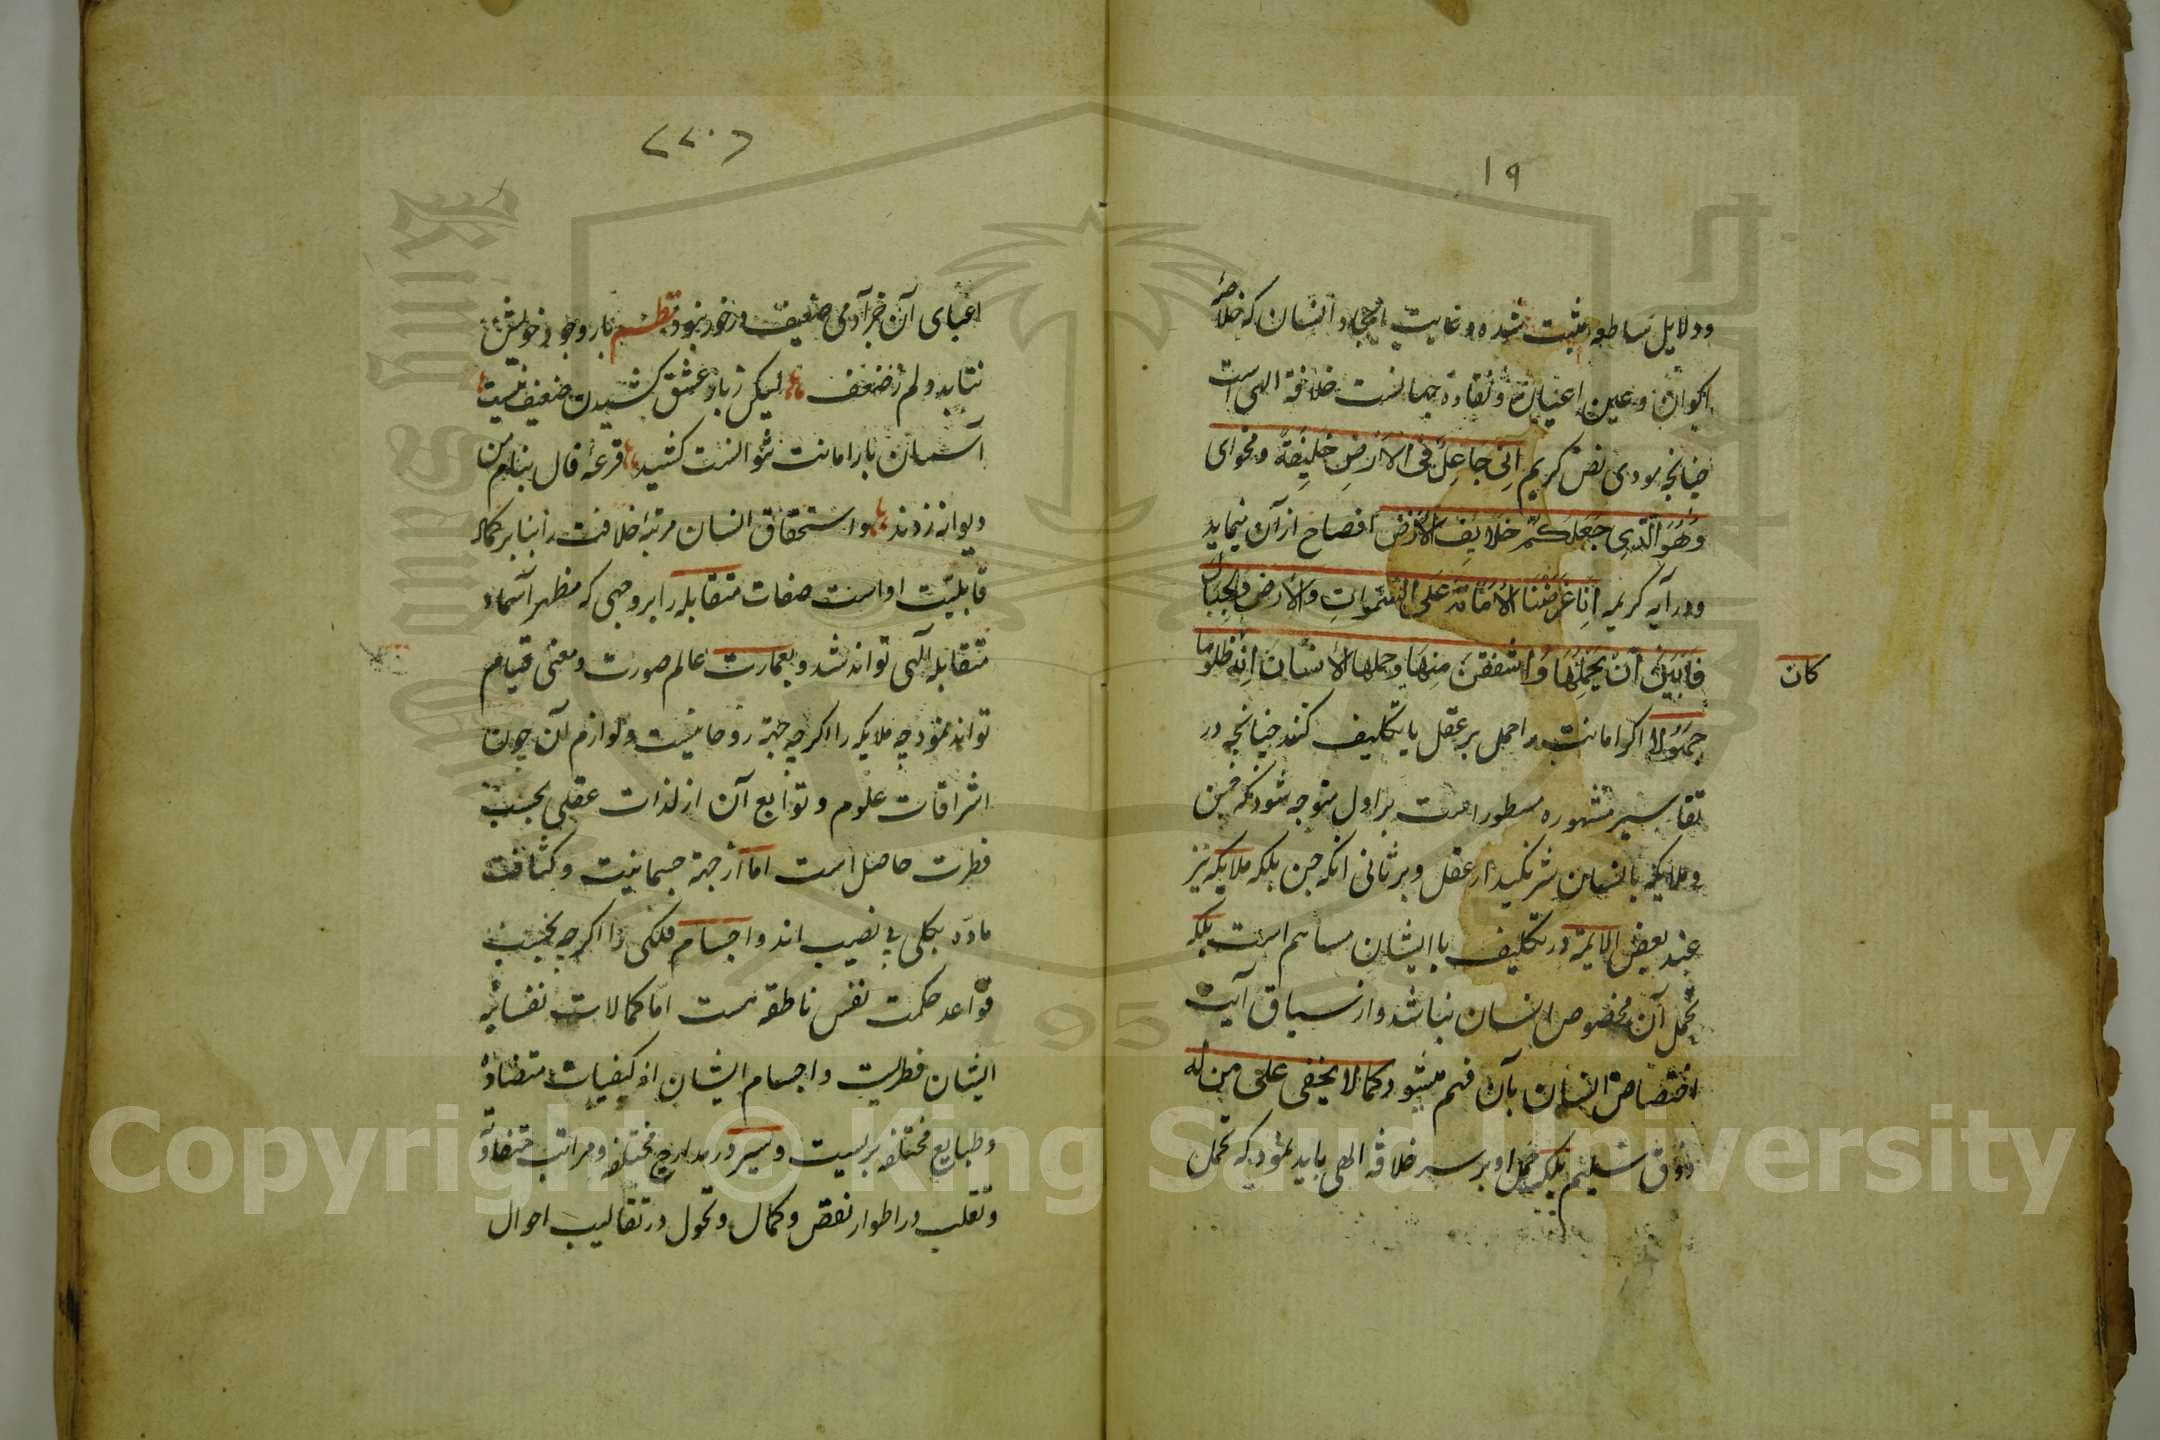 ١٩
ودلایل ساطعه مثبت شده وغایت ایجاد انسان که خلاصهٔ
اکوان وعین اعیان ونقاوه جهانست خلافة الهی است
چنانچه مودی نص کریم اِنّی جَاعِلٌ فِی الاَرْضِ خَلِیفَةً وفحوای
وَهُوَ الَّذِی جَعَلَکُمْ خَلَایِفَ الاَرْضِ افصاح ازآن مینماید
ودرآیه کریمه اِنّا عَرَضْنَا الاَمَانَةَ عَلَی السَّمَوَاتِ وَالاَرْضِ وَالجِبَالِ
فَاَبَیْنَ اَنْ یَحْمِلْنَهَا وَاشفقنَ مِنهَا وحملها الاِنسَانَ اِنّهُ ظلومًا
کان
جَهُولًا اکر امانت را حمل بر عقل یا تکلیف کنند چنانچه در
تفاسیر مشهوره مسطور است بر اول متوجه شود که جن
وملایکه باانسان شریکند در عقل وبر ثانی انکه جن بلکه ملایکه نیز
عند بعض الایمة در تکلیف باایشان مساهم است بلکه
تحمل آن مخصوص انسان نباشد واز سیاق آیت
اختصاص انسان بآن فهم میشود کما لا یخفی علی من له
ذوق سلیم بلکه حمل او بر سر خلافة الهی باید نمود که تحمل
٢٢٠٦
اعبای آن جز آدمی ضعیف درخور نبود نظم بار وجود خویش
نتابد ولم ز ضعف لیکن ز بار عشق کشیدن ضعیف نیست
آسمان بار امانت نتوانست کشید قرعهٔ فال بنام من
دیوانه زدند واستحقاق انسان مرتبهٔ خلافت را بنابر کمال
قابلیّت اواست صفات متقابله را بر وجهی که مظهر اسماء
متقابله آلهی تواند شد وبعمارت عالم صورت ومعنی قیام
تواند نمود چه ملایکه را اکرچه جهة روحانیت ولوازم آن چون
اشراقات علوم وتوابع آن از لذات عقلی بحسب
فطرت حاصل است اما از جهة جسمانیت وکثافت
مادّه بکلی بی نصیب اند واجسام فلکی را اکرچه بحسب
قواعد حکمت نفس ناطقه هست اما کمالات نفسانیه
ایشان فطریست واجسام ایشان از کیفیات متضادّه
وطبایع مختلفه بریست وسیر در مدارج مختلفه ومراتب متفاوته
وتقلب در اطوار نقص وکمال وتحول در تقالیب احوال
Copyright © King Saud University
King Saud University
1957